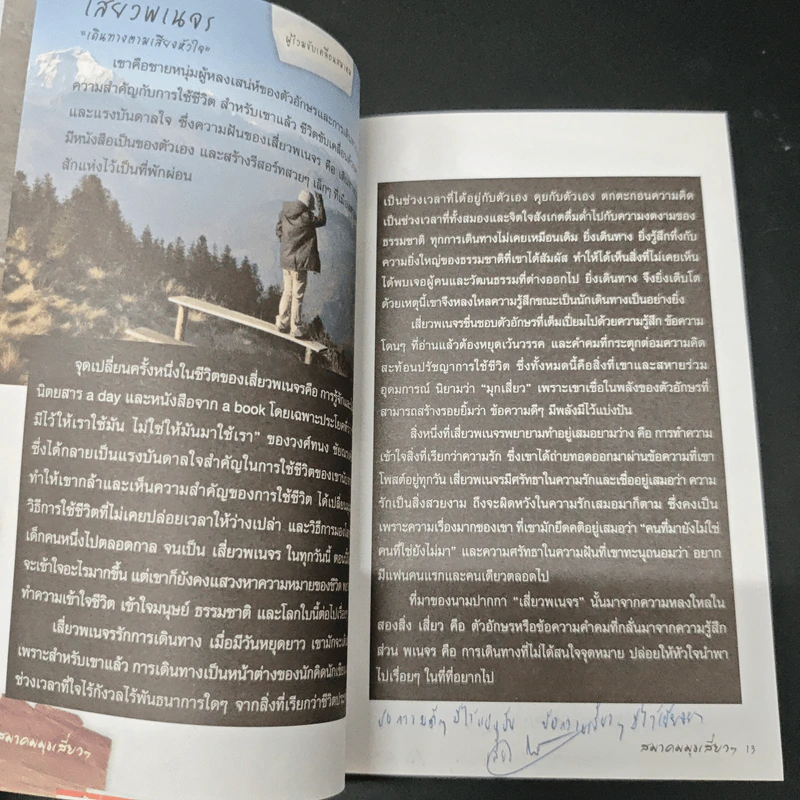 เสี่ยวพเนจร
"เดินทางตามเสียงหัวใจ"
ผู้ร่วมขับเคลื่อนสมาคม
เขาคือชายหนุ่มผู้หลงเสน่ห์ของตัวอักษรและการเดิน
ความสำคัญกับการใช้ชีวิต สำหรับเขาแล้ว ชีวิตขับเคลื่อนด้วย
และแรงบันดาลใจ ซึ่งความฝันของเสี่ยวพเนจร คือ
มีหนังสือเป็นของตัวเอง และสร้างรีสอร์ทสวยๆ เล็กๆ ที่
สักแห่งไว้เป็นที่พักผ่อน
จุดเปลี่ยนครั้งหนึ่งในชีวิตของเสี่ยวพเนจรคือ การรู้จัก
นิตยสาร a day และหนังสือจาก a book โดยเฉพาะประโยค
มีไว้ให้เราใช้มัน ไม่ใช่ให้มันมาใช้เรา" ของวงศ์ทนง
ซึ่งได้กลายเป็นแรงบันดาลใจสำคัญในการใช้ชีวิตของเขา
ทำให้เขากล้าและเห็นความสำคัญของการใช้ชีวิต ได้เปลี่ยน
วิธีการใช้ชีวิตที่ไม่เคยปล่อยเวลาให้ว่างเปล่า และวิธีการมอง
เด็กคนหนึ่งไปตลอดกาล จนเป็น เสี่ยวพเนจร ในทุกวันนี้
จะเข้าใจอะไรมากขึ้น แต่เขาก็ยังคงแสวงหาความหมายของชีวิต
ทำความเข้าใจชีวิต เข้าใจมนุษย์ ธรรมชาติ และโลกใบนี้ต่อไป
เสี่ยวพเนจรรักการเดินทาง เมื่อมีวันหยุดยาว เขามักจะ
เพราะสำหรับเขาแล้ว การเดินทางเป็นหน้าต่างของนักคิดนักเขียน
ช่วงเวลาที่ใจไร้กังวลไร้พันธนาการใดๆ จากสิ่งที่เรียกว่าชีวิต
สมาคมมุขเสี่ยวๆ
เป็นช่วงเวลาที่ได้อยู่กับตัวเอง คุยกับตัวเอง ตกตะกอนความคิด
เป็นช่วงเวลาที่ทั้งสมองและจิตใจสังเกตดื่มด่ำไปกับความงดงามของ
ธรรมชาติ ทุกการเดินทางไม่เคยเหมือนเดิม ยิ่งเดินทาง ยิ่งรู้สึกทึ่งกับ
ความยิ่งใหญ่ของธรรมชาติที่เขาได้สัมผัส ทำให้ได้เห็นสิ่งที่ไม่เคยเห็น
ได้พบเจอผู้คนและวัฒนธรรมที่ต่างออกไป ยิ่งเดินทาง จึงยิ่งเติบโต
ด้วยเหตุนี้เขาจึงหลงใหลความรู้สึกขณะเป็นนักเดินทางเป็นอย่างยิ่ง
เสี่ยวพเนจรชื่นชอบตัวอักษรที่เต็มเปี่ยมไปด้วยความรู้สึก ข้อความ
โดนๆ ที่อ่านแล้วต้องหยุดเว้นวรรค และคำคมที่กระตุกต่อมความคิด
สะท้อนปรัชญาการใช้ชีวิต ซึ่งทั้งหมดนี้คือสิ่งที่เขาและสหายร่วม
อุดมการณ์ นิยามว่า "มุกเสี่ยว" เพราะเขาเชื่อในพลังของตัวอักษรที่
สามารถสร้างรอยยิ้มว่า ข้อความดีๆ มีพลังมีไว้แบ่งปัน
สิ่งหนึ่งที่เสี่ยวพเนจรพยายามทำอยู่เสมอยามว่าง คือ การทำความ
เข้าใจสิ่งที่เรียกว่าความรัก ซึ่งเขาได้ถ่ายทอดออกมาผ่านข้อความที่เขา
โพสต์อยู่ทุกวัน เสี่ยวพเนจรมีศรัทธาในความรักและเชื่ออยู่เสมอว่า ความ
รักเป็นสิ่งสวยงาม ถึงจะผิดหวังในความรักเสมอมาก็ตาม ซึ่งคงเป็น
เพราะความเรื่องมากของเขา ที่เขามักยึดคติอยู่เสมอว่า "คนที่มายังไม่ใช่
คนที่ใช่ยังไม่มา" และความศรัทธาในความฝันที่เขาทะนุถนอมว่า อยาก
มีแฟนคนแรกและคนเดียวตลอดไป
ที่มาของนามปากกา "เสี่ยวพเนจร" นั้นมาจากความหลงใหลใน
สองสิ่ง เสี่ยว คือ ตัวอักษรหรือข้อความคำคมที่กลั่นมาจากความรู้สึก
ส่วน พเนจร คือ การเดินทางที่ไม่ได้สนใจจุดหมาย ปล่อยให้หัวใจนำพา
ไปเรื่อยๆ ในที่ที่อยากไป
ข้อความดีๆ มีไว้แบ่งปัน
สมาคมมุขเสี่ยวๆ 13